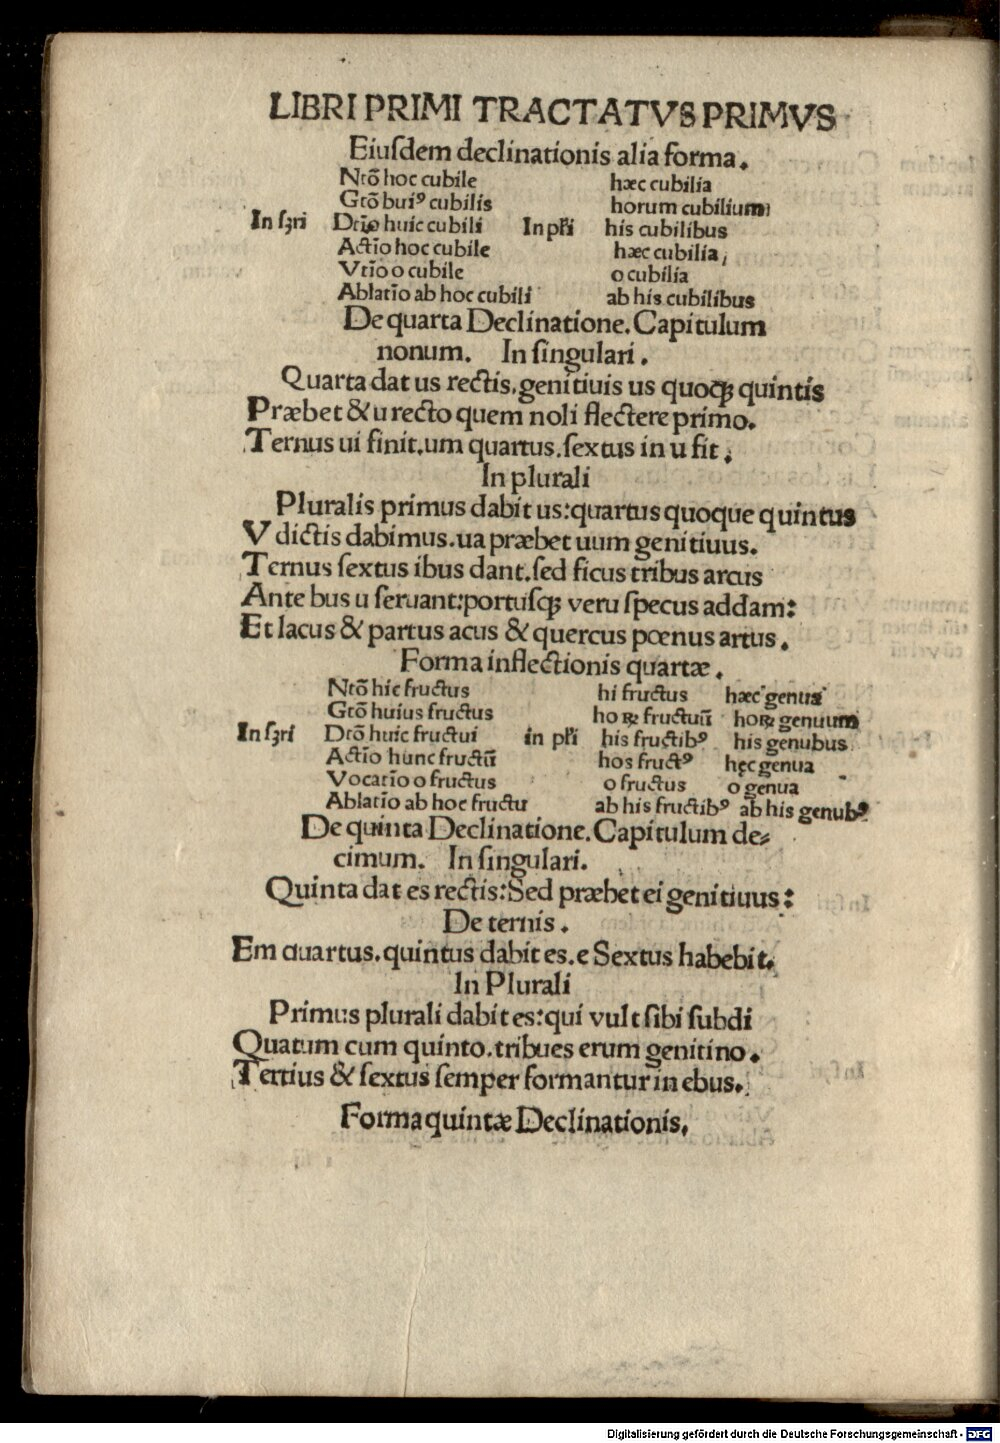 LIBRI PRIMI TRACTATVS PRIMVS
Eiuſdem declinationis alia forma.
Ntō hoc cubile hæc cubilia
Gtō huiꝰ cubilis horum cubilium
In ſʒri Dtīo huic cubili In pƚi his cubilibus
Actīo hoc cubile hæc cubilia
Vtīo o cubile o cubilia
Ablatīo ab hoc cubili ab his cubilibus
De quarta Declinatione. Capitulum
nonum. In ſingulari.
Quarta dat us rectis, genitiuis us quoqꝫ quintis
Præbet & u recto quem noli flectere primo.
Ternus ui finit. um quartus. ſextus in u fit.
In plurali
Pluralis primus dabit us: quartus quoque quintus
V dictis dabimus. ua præbet uum genitiuus.
Ternus ſextus ibus dant. ſed ficus tribus arcus
Ante bus u ſeruant: portuſqꝫ veru ſpecus addam:
Et lacus & partus acus & quercus pœnus artus.
Forma inflectionis quartæ.
Ntō hic fructus hi fructus hæc genua
Gtō huius fructus hoꝝ fructuū hoꝝ genuum
In ſʒri Dtō huic fructui in pƚi his fructibꝰ his genubus
Actīo hunc fructū hos fructꝰ hęc genua
Vocatīo o fructus o fructus o genua
Ablatīo ab hoc fructu ab his fructibꝰ ab his genubꝰ
De quinta Declinatione. Capitulum de⸗
cimum. In ſingulari.
Quinta dat es rectis: Sed præbet ei genitiuus:
De ternis.
Em quartus. quintus dabit es. e Sextus habebit.
In Plurali
Primus plurali dabit es: qui vult ſibi ſubdi
Quatum cum quinto. tribues erum genitino.
Tertius & ſextus ſemper formantur in ebus.
Forma quintæ Declinationis.
Digitalisierung gefördert durch die Deutsche Forschungsgemeinschaft - DFG